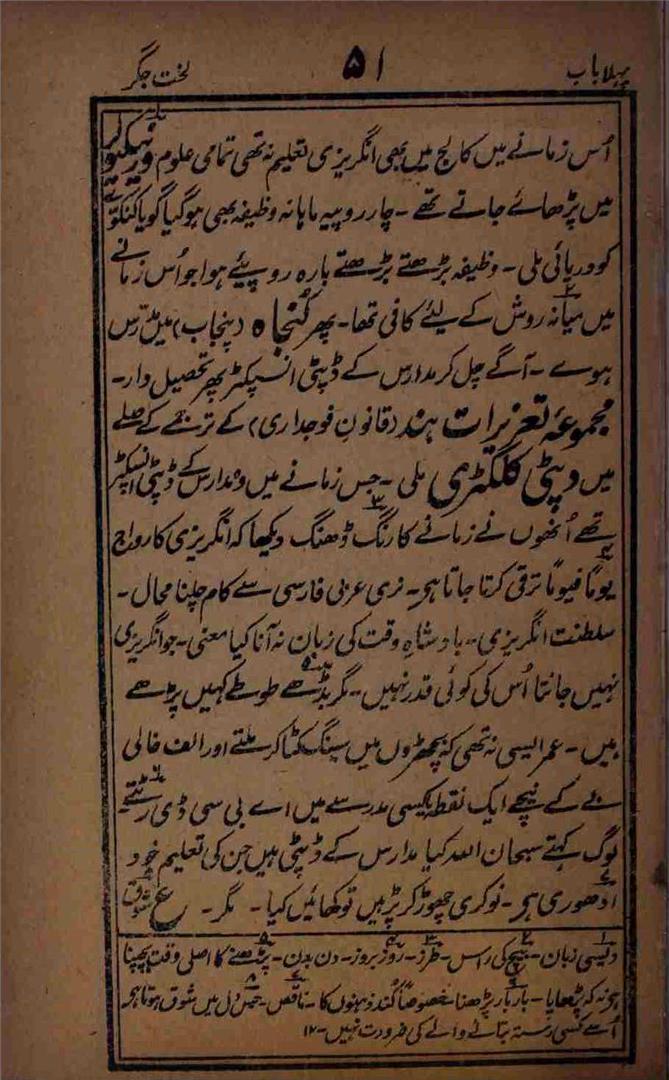 پہلا باب
۵۱
لخت جگر
اُس زمانے میں کالج میں بھی انگریزی تعلیم نہ تھی تمامی علوم ورنیکلر
میں پڑھائے جاتے تھے - چار روپیہ ماہانہ وظیفہ بھی ہوگیا گویا کنگلے
کو دریائی ملی - وظیفہ بڑھتے بڑھتے بارہ روپیئے ہوا جو اُس زمانے
میں میانہ روش کے لیئے کافی تھا - پھر کُنجاہ (پنجاب) میں مدرس
ہوے - آگے چل کر مدارس کے ڈپٹی انسپکٹر پھر تحصیل دار -
مجموعۂ تعزیرات ہند (قانون فوجداری) کے ترجمے کے صلے
میں ڈپٹی کلکٹری ملی - جس زمانے میں وہ مدارس کے ڈپٹی انسپکٹر
تھے اُنھوں نے زمانے کا رنگ ڈھنگ دیکھا کہ انگریزی کا رواج
یوماً فیوماً ترقی کرتا جاتا ہی - نری عربی فارسی سے کام چلنا محال -
سلطنت انگریزی - بادشاہِ وقت کی زبان نہ آنا کیا معنی - جو انگریزی
نہیں جانتا اُس کی کوئی قدر نہیں - مگر بڈھے طوطے کہیں پڑھے
ہیں - عمر ایسی نہ تھی کہ بچھڑوں میں سینگ کٹا کر ملتے اور الف خالی
بے کے نیچے ایک نقطہ یا کسی مدرسے میں اے بی سی ڈی رٹتے -
لوگ کہتے سبحان اللہ کیا مدارس کے ڈپٹی ہیں جن کی تعلیم خود
ادھوری ہی - نوکری چھوڑ کر پڑہیں تو کھائیں کیا - مگر - ع شوق
۱ دیسی زبان - ۲ بیچ کی راس - ۳ طرز - ۴ روز بروز - دن بدن - ۵ پڑھنے کا اصلی وقت بچپنا
ہی نہ کہ بڑھاپا - ۶ بار بار پڑھنا خصوصاً کند ذہنوں کا - ۷ ناقص - ۸ جس دل میں شوق ہوتا ہی
اُسے کسی رستہ بتانے والے کی ضرورت نہیں - ۱۲